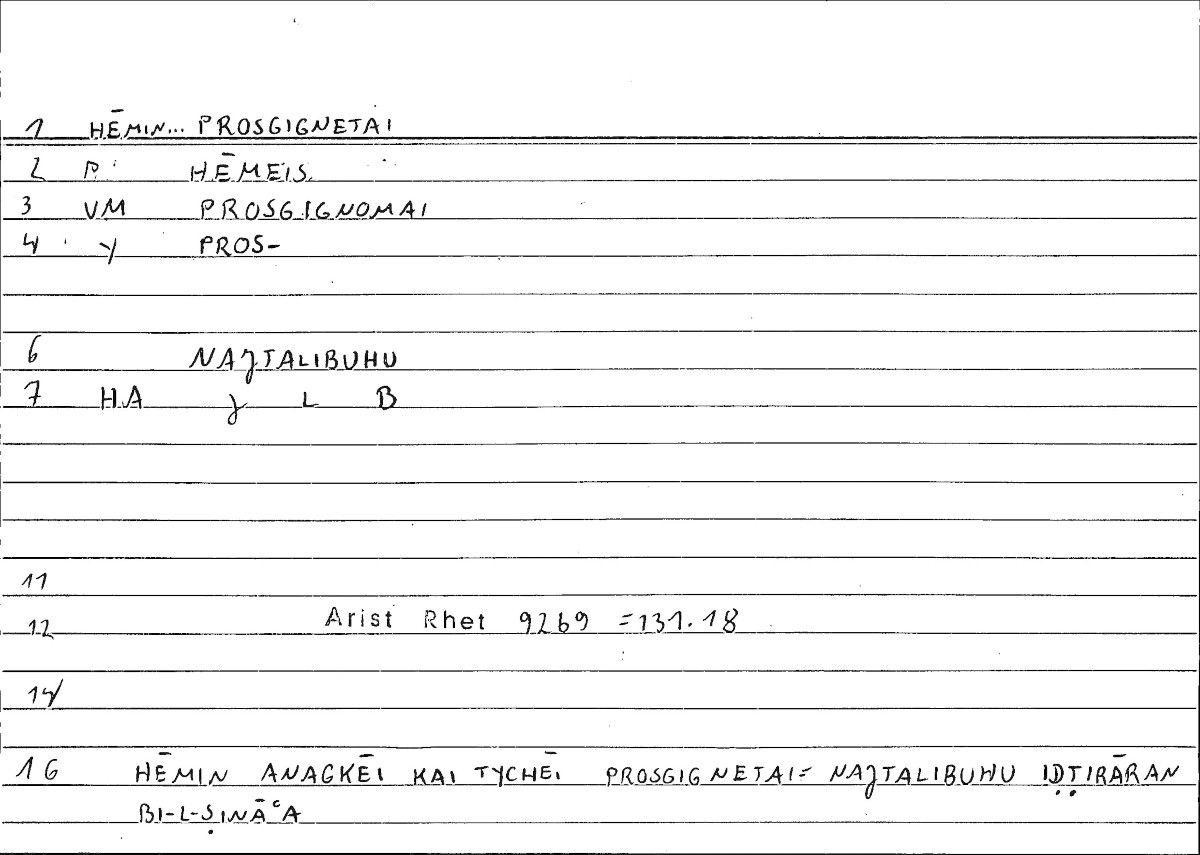 1 HĒMIN... PROSGIGNETAI
2 P. HĒMEIS.
3 VM PROSGIGNOMAI
4 Y PROS-
6 NAJTALIBUHU
7 HA J L B
11
12 Arist Rhet 9269 =131.18
14
16 HĒMIN ANAGKĒI KAI TYCHĒI PROSGIGNETAI= NAJTALIBUHU IḌṬIRĀRAN
BI-L-ṢINĀʿA